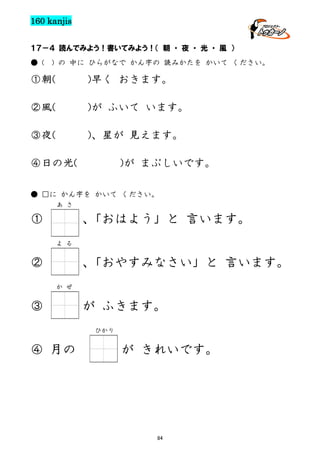 160 kanjis
プロジェクト
トゥカーノ
17－4 読んでみよう！書いてみよう！（ 朝 ・ 夜 ・ 光 ・ 風 ）
●（ ）の 中に ひらがなで かん字の 読みかたを かいて ください。
①朝( )早く おきます。
②風( )が ふいて います。
③夜( )、星が 見えます。
④日の光( )が まぶしいです。
● □に かん字を かいて ください。
あ さ
① 、「おはよう」と 言います。
よ る
② 、「おやすみなさい」と 言います。
か ぜ
③ が ふきます。
ひかり
④ 月の が きれいです。
84